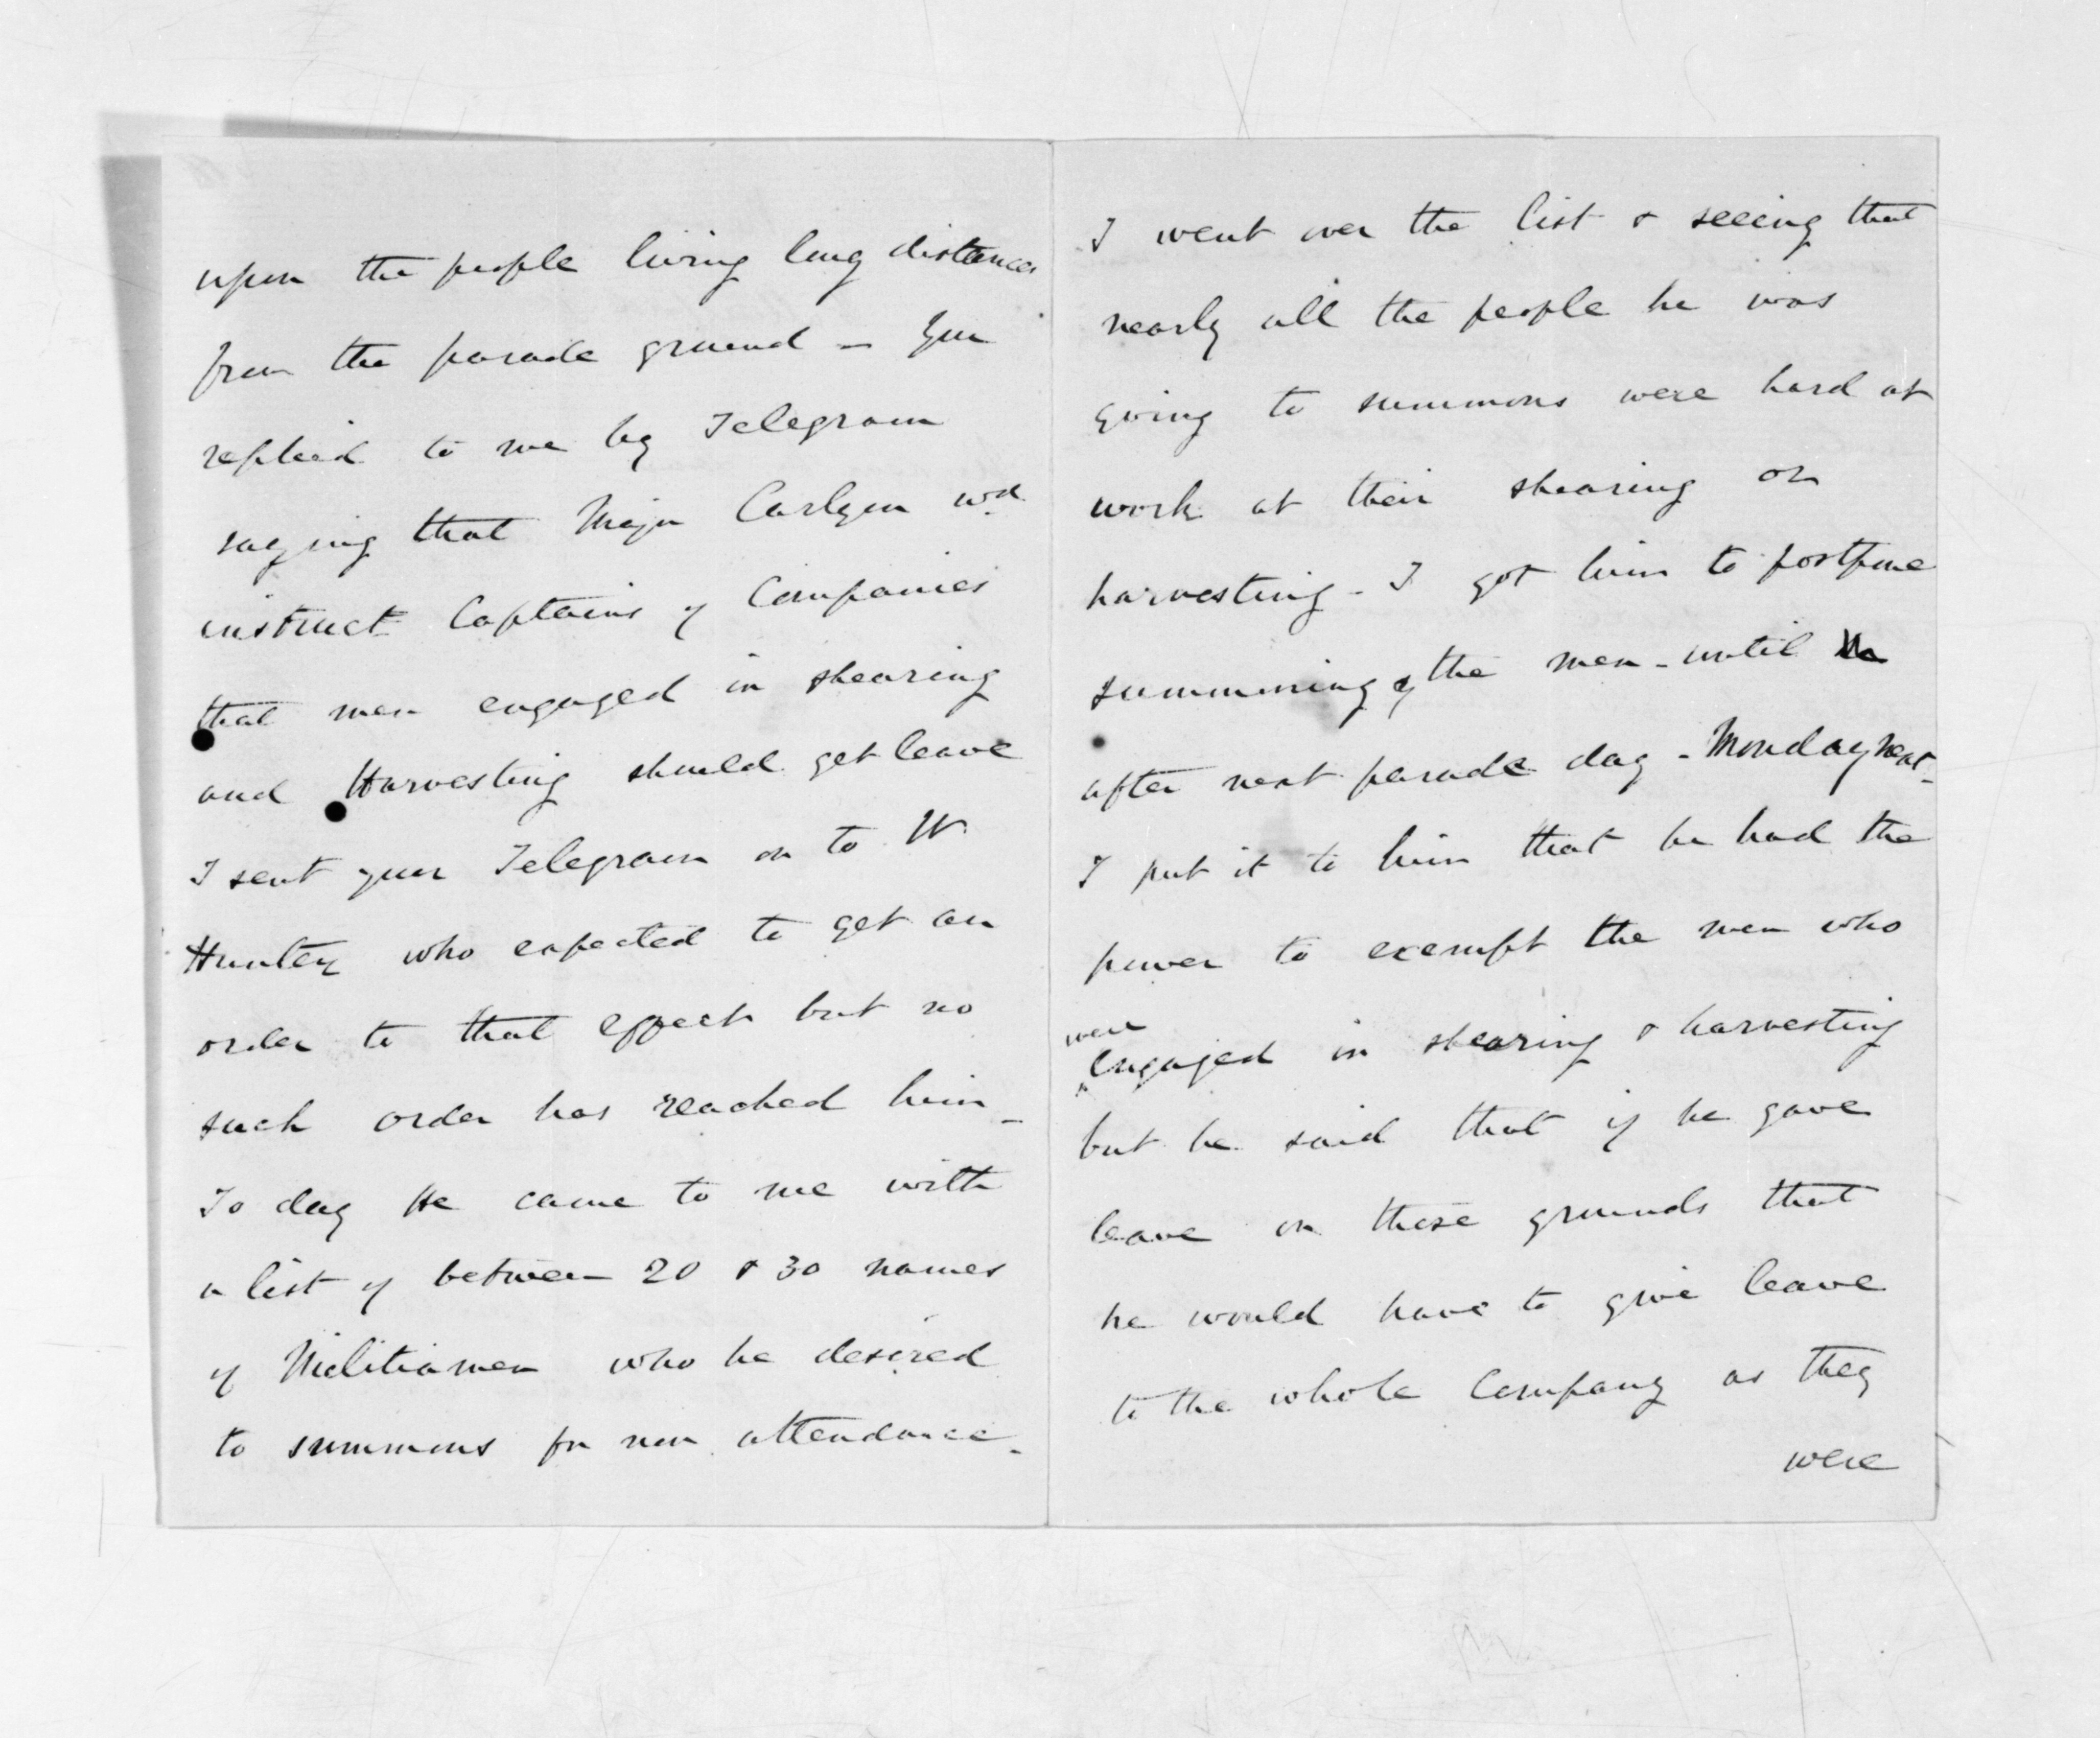 upon the people living long distances
from the parade ground – You
replied to me by Telegram
saying that Major Carlyon wd
instruct Captains of Companies
that men engaged in shearing
and Harvesting should get leave
I sent your Telegram on to W
Huntly who expected to get an
order to that effect but no
such order has reached him –
To day He came to me with
a list of between 20 & 30 names
of Militiamen who he desired
to summons for non attendance –
I went over the list & seeing that
nearly all the people he was
going to summons were hard at
work at their shearing or
harvesting – I got him to postpone
summoning of the men – until
after next parade day – Monday next –
I put it to him that he had the
power to exempt the men who
were
engaged in shearing & harvesting
but he said that if he gave
leave on these grounds that
he would have to give leave
to the whole Company as they
were